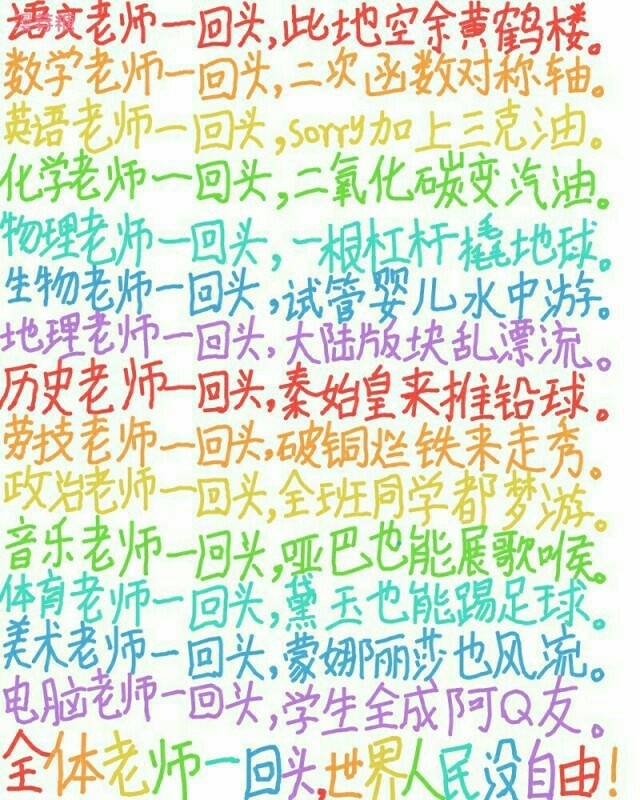 语文老师一回头,此地空余黄鹤楼。
数学老师一回头,二次函数对称轴。
英语老师一回头,sorry加上三克油。
化学老师一回头,二氧化碳变汽油。
物理老师一回头,一根杠杆撬地球。
生物老师一回头,试管婴儿水中游。
地理老师一回头,大陆版块乱漂流。
历史老师一回头,秦始皇来推铅球。
劳技老师一回头,破铜烂铁来走秀。
政治老师一回头,全班同学都梦游。
音乐老师一回头,哑巴也能展歌喉。
体育老师一回头,黛玉也能踢足球。
美术老师一回头,蒙娜丽莎也风流。
电脑老师一回头,学生全成阿Q友。
全体老师一回头,世界人民没自由!